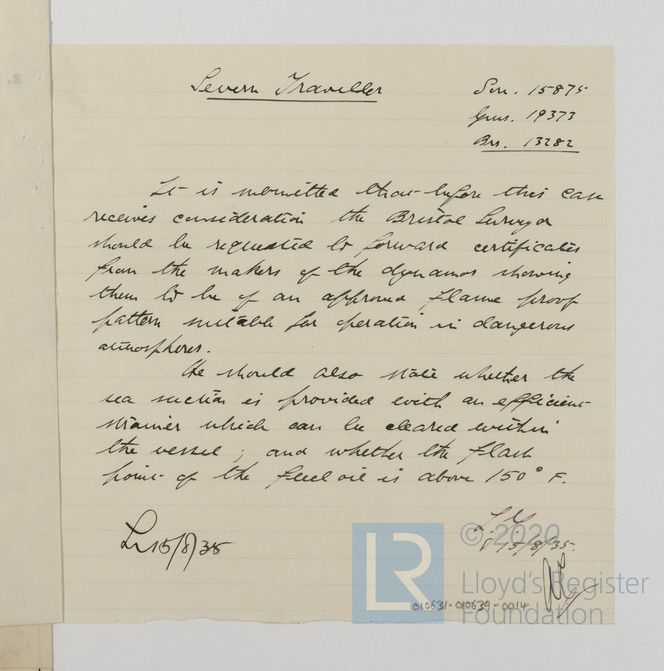 Severn Traveller
Sun. 15875
Grns. 19373
Brs. 13282
It is submitted that before this case
receives consideration the Bristol Surveyor
should be requested to forward certificates
from the makers of the dynamos showing
them to be of an approved flame proof
pattern suitable for operation in dangerous
atmospheres.
He should also state whether the
sea suction is provided with an efficient
strainer which can be cleared within
the vessel; and whether the flash
point of the fuel oil is above 150° F.
15/8/35
15/8/35.
010631-010639-0014
LR
© 2020
Lloyd's Register
Foundation